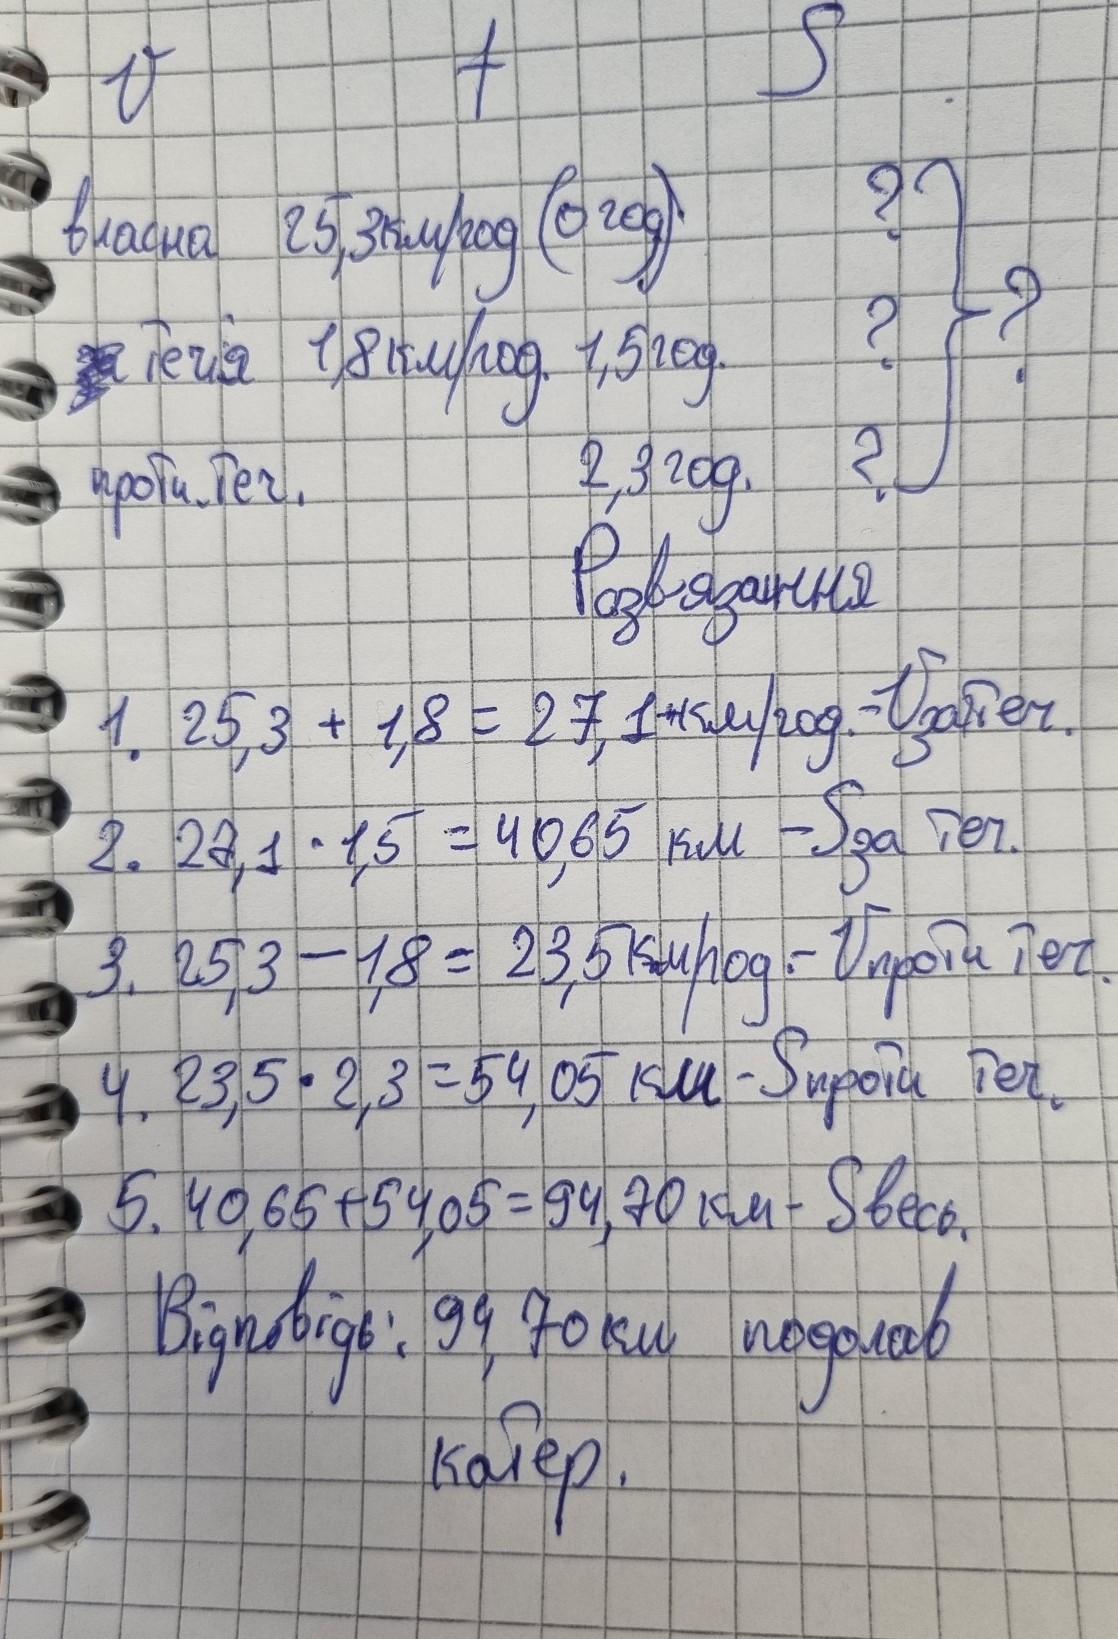 V t S
власна 25,3км/год (0 год) ?
течія 1,8км/год. 1,5год. ? ?
проти теч. 2,3год. ?
Розв'язання
1. 25,3 + 1,8 = 27,1 км/год. - Vза теч.
2. 27,1 · 1,5 = 40,65 км - Sза теч.
3. 25,3 - 1,8 = 23,5км/год. - Vпроти теч.
4. 23,5 · 2,3 = 54,05 км - Sпроти теч.
5. 40,65 + 54,05 = 94,70 км - Sвесь.
Відповідь: 94,70 км подолав
катер.